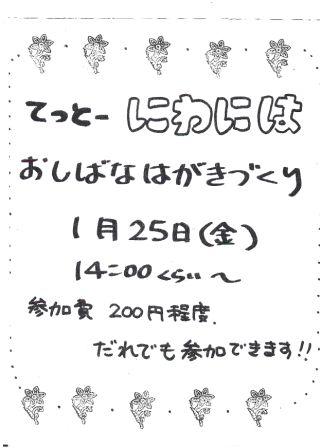 てっとー にわには
おしばなはがきづくり
1月25日(金)
14:00くらい～
参加費 200円程度.
だれでも参加できます!!